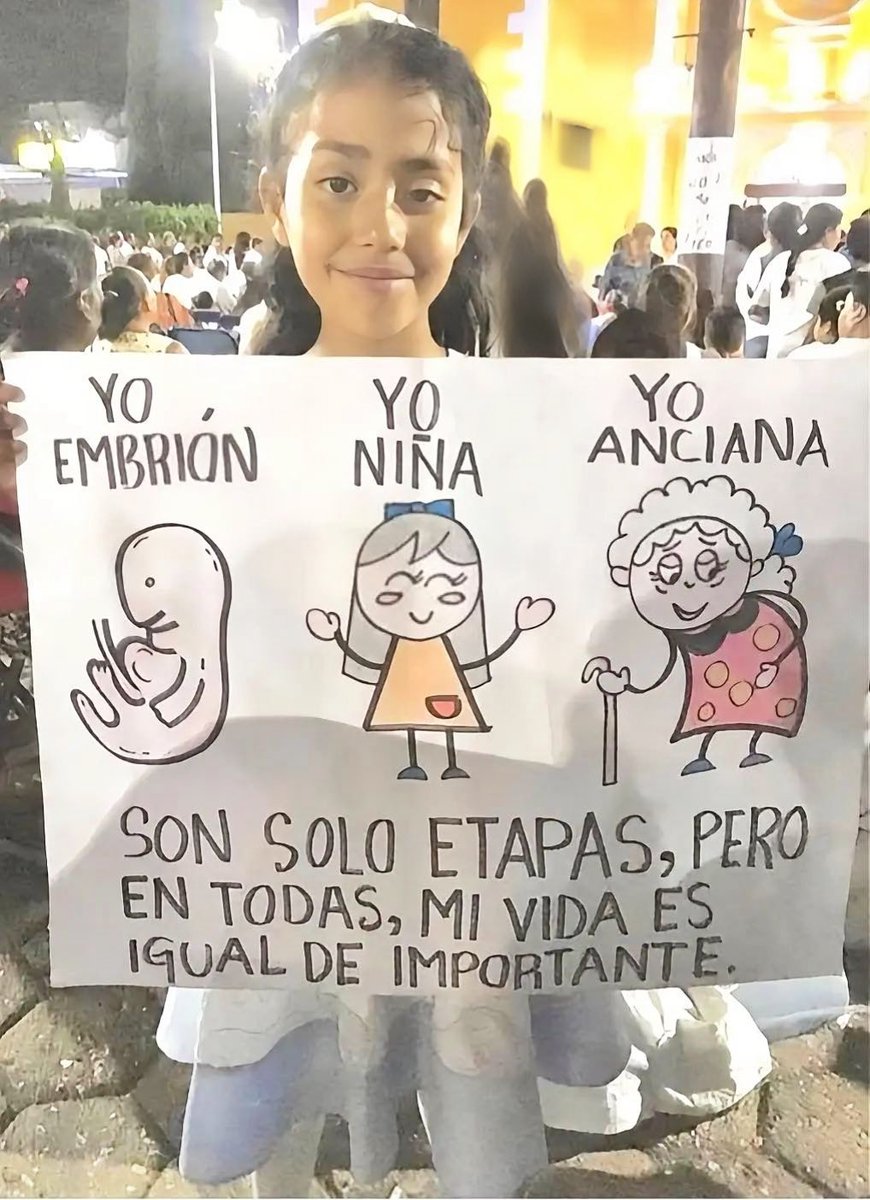 YO
EMBRIÓN
YO
NIÑA
YO
ANCIANA
SON SOLO ETAPAS, PERO
EN TODAS, MI VIDA ES
IGUAL DE IMPORTANTE.